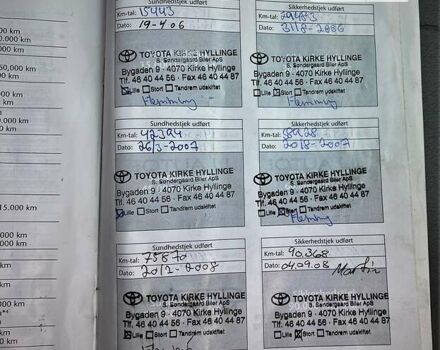 0 km
0.000 km
000 km
.000 km
15.000 km
000 km
0.000 km
.000 km
000 km
Sundhedstjek udført
Km-tal: 15443
Dato: 19-4 06
TOYOTA KIRKE HYLLINGE
S. Søndergaard Biler ApS
Bygaden 9 - 4070 Kirke Hyllinge
Tlf. 46 40 44 56 - Fax 46 40 44 87
Lille Stort Tandrem udskiftet
Flemming
Sikkerhedstjek udført
Km-tal: 29483
Dato: 31/8-2006
TOYOTA KIRKE HYLLINGE
S. Søndergaard Biler ApS
Bygaden 9 - 4070 Kirke Hyllinge
Tlf. 46 40 44 56 - Fax 46 40 44 87
Lille Stort Tandrem udskiftet
Flemming
Sundhedstjek udført
Km-tal: 42394
Dato: 26/3-2007
TOYOTA KIRKE HYLLINGE
S. Søndergaard Biler ApS
Bygaden 9 - 4070 Kirke Hyllinge
Tlf. 46 40 44 56 - Fax 46 40 44 87
Lille Stort Tandrem udskiftet
Sikkerhedstjek udført
Km-tal: 58928
Dato: 20/8-2007
TOYOTA KIRKE HYLLINGE
S. Søndergaard Biler ApS
Bygaden 9 - 4070 Kirke Hyllinge
Tlf. 46 40 44 56 - Fax 46 40 44 87
Lille Stort Tandrem udskiftet
Flemming
Sundhedstjek udført
Km-tal: 75870
Dato: 20/2-2008
TOYOTA KIRKE HYLLINGE
S. Søndergaard Biler ApS
Bygaden 9 - 4070 Kirke Hyllinge
Tlf. 46 40 44 56 - Fax 46 40 44 87
Lille Stort Tandrem udskiftet
Sikkerhedstjek udført
Km-tal: 90.368
Dato: 04.09.08 Martin
TOYOTA KIRKE HYLLINGE
S. Søndergaard Biler ApS
Bygaden 9 - 4070 Kirke Hyllinge
Tlf. 46 40 44 56 - Fax 46 40 44 87
Lille Stort Tandrem udskiftet